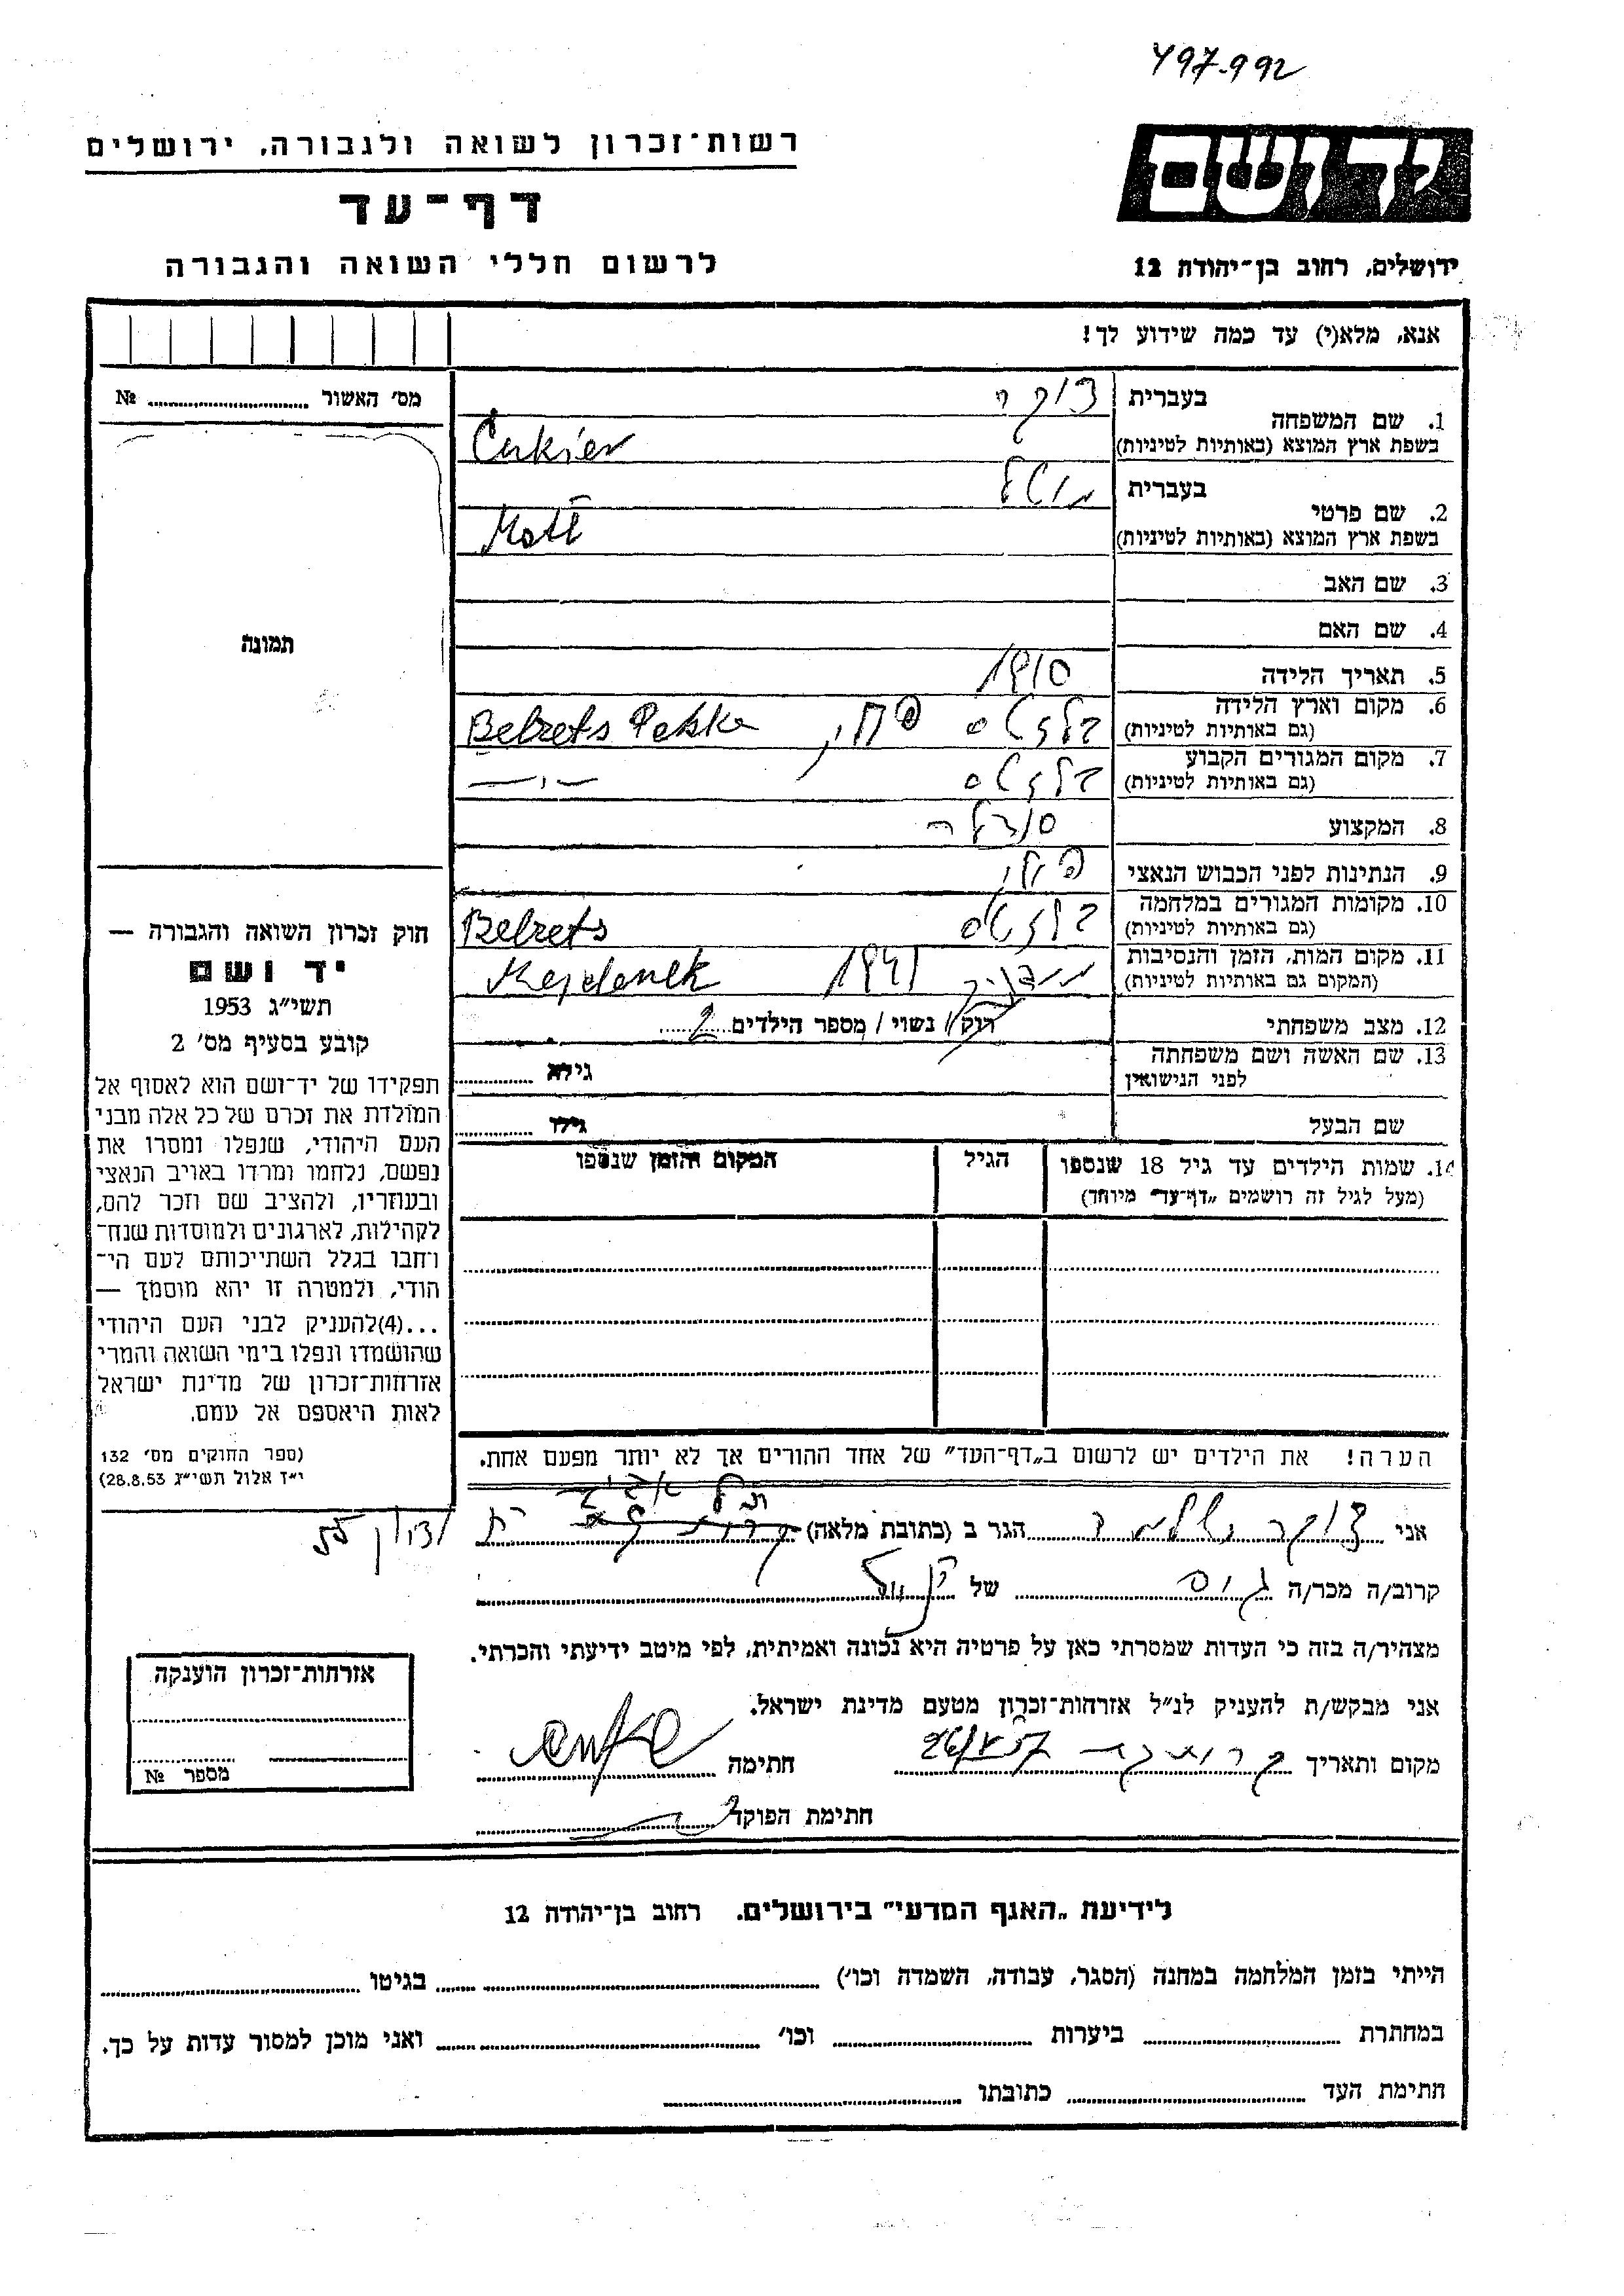 497.992
רשות־זכרון לשואה ולגבורה, ירושלים
דף־עד
לרשום חללי השואה והגבורה
יד ושם
ירושלים, רחוב בן־יהודה 12
אנא, מלא(י) עד כמה שידוע לך!
מס׳ האשור № 
תמונה
חוק זכרון השואה והגבורה —
יד ושם
תשי״ג 1953
קובע בסעיף מס׳ 2
תפקידו של יד־ושם הוא לאסוף אל
המולדת את זכרם של כל אלה מבני
העם היהודי, שנפלו ומסרו את
נפשם, נלחמו ומרדו באויב הנאצי
ובעוזריו, ולהציב שם וזכר להם,
לקהילות, לארגונים ולמוסדות שנח־
רחבו בגלל השתייכותם לעם הי־
הודי, ולמטרה זו יהא מוסמך —
...(4)להעניק לבני העם היהודי
שהושמדו ונפלו בימי השואה והמרי
אזרחות־זכרון של מדינת ישראל
לאות היאספם אל עמם.
(ספר החוקים מס׳ 132
י״ד אלול תשי״ג 28.8.53)
1. שם המשפחה בעברית צוקר
בשפת ארץ המוצא (באותיות לטיניות) Cukier
2. שם פרטי בעברית מוטל
בשפת ארץ המוצא (באותיות לטיניות) Motl
3. שם האב
4. שם האם
5. תאריך הלידה 1910
6. מקום וארץ הלידה
(גם באותיות לטיניות) בלזטס Belzets
7. מקום המגורים הקבוע
(גם באותיות לטיניות) בלזטס
8. המקצוע סנדלר
9. הנתינות לפני הכבוש הנאצי פולני
10. מקומות המגורים במלחמה
(גם באותיות לטיניות) בלזטס Belzets
11. מקום המות, הזמן והנסיבות
(המקום גם באותיות לטיניות) מידניק 1941 Majdanek
12. מצב משפחתי רוק/ נשוי/ מספר הילדים 2
13. שם האשה ושם משפחתה
לפני הנישואין גילה
שם הבעל גילו
14. שמות הילדים עד גיל 18 שנספו הגיל המקום והזמן שנספו
(מעל לגיל זה רושמים „דף־עד״ מיוחד)
הערה! את הילדים יש לרשום ב„דף־העד״ של אחד ההורים אך לא יותר מפעם אחת.
אני צוקר הגר ב (כתובת מלאה)
קרוב/ה מכר/ה גיס של
מצהיר/ה בזה כי העדות שמסרתי כאן על פרטיה היא נכונה ואמיתית, לפי מיטב ידיעתי והכרתי.
אני מבקש/ת להעניק לנ״ל אזרחות־זכרון מטעם מדינת ישראל.
מקום ותאריך חתימה
חתימת הפוקד
אזרחות־זכרון הוענקה
מספר №
לידיעת „האגף המדעי״ בירושלים. רחוב בן־יהודה 12
הייתי בזמן המלחמה במחנה (הסגר, עבודה, השמדה וכו׳) בגיטו
במחתרת ביערות וכו׳ ואני מוכן למסור עדות על כך.
חתימת העד כתובתו